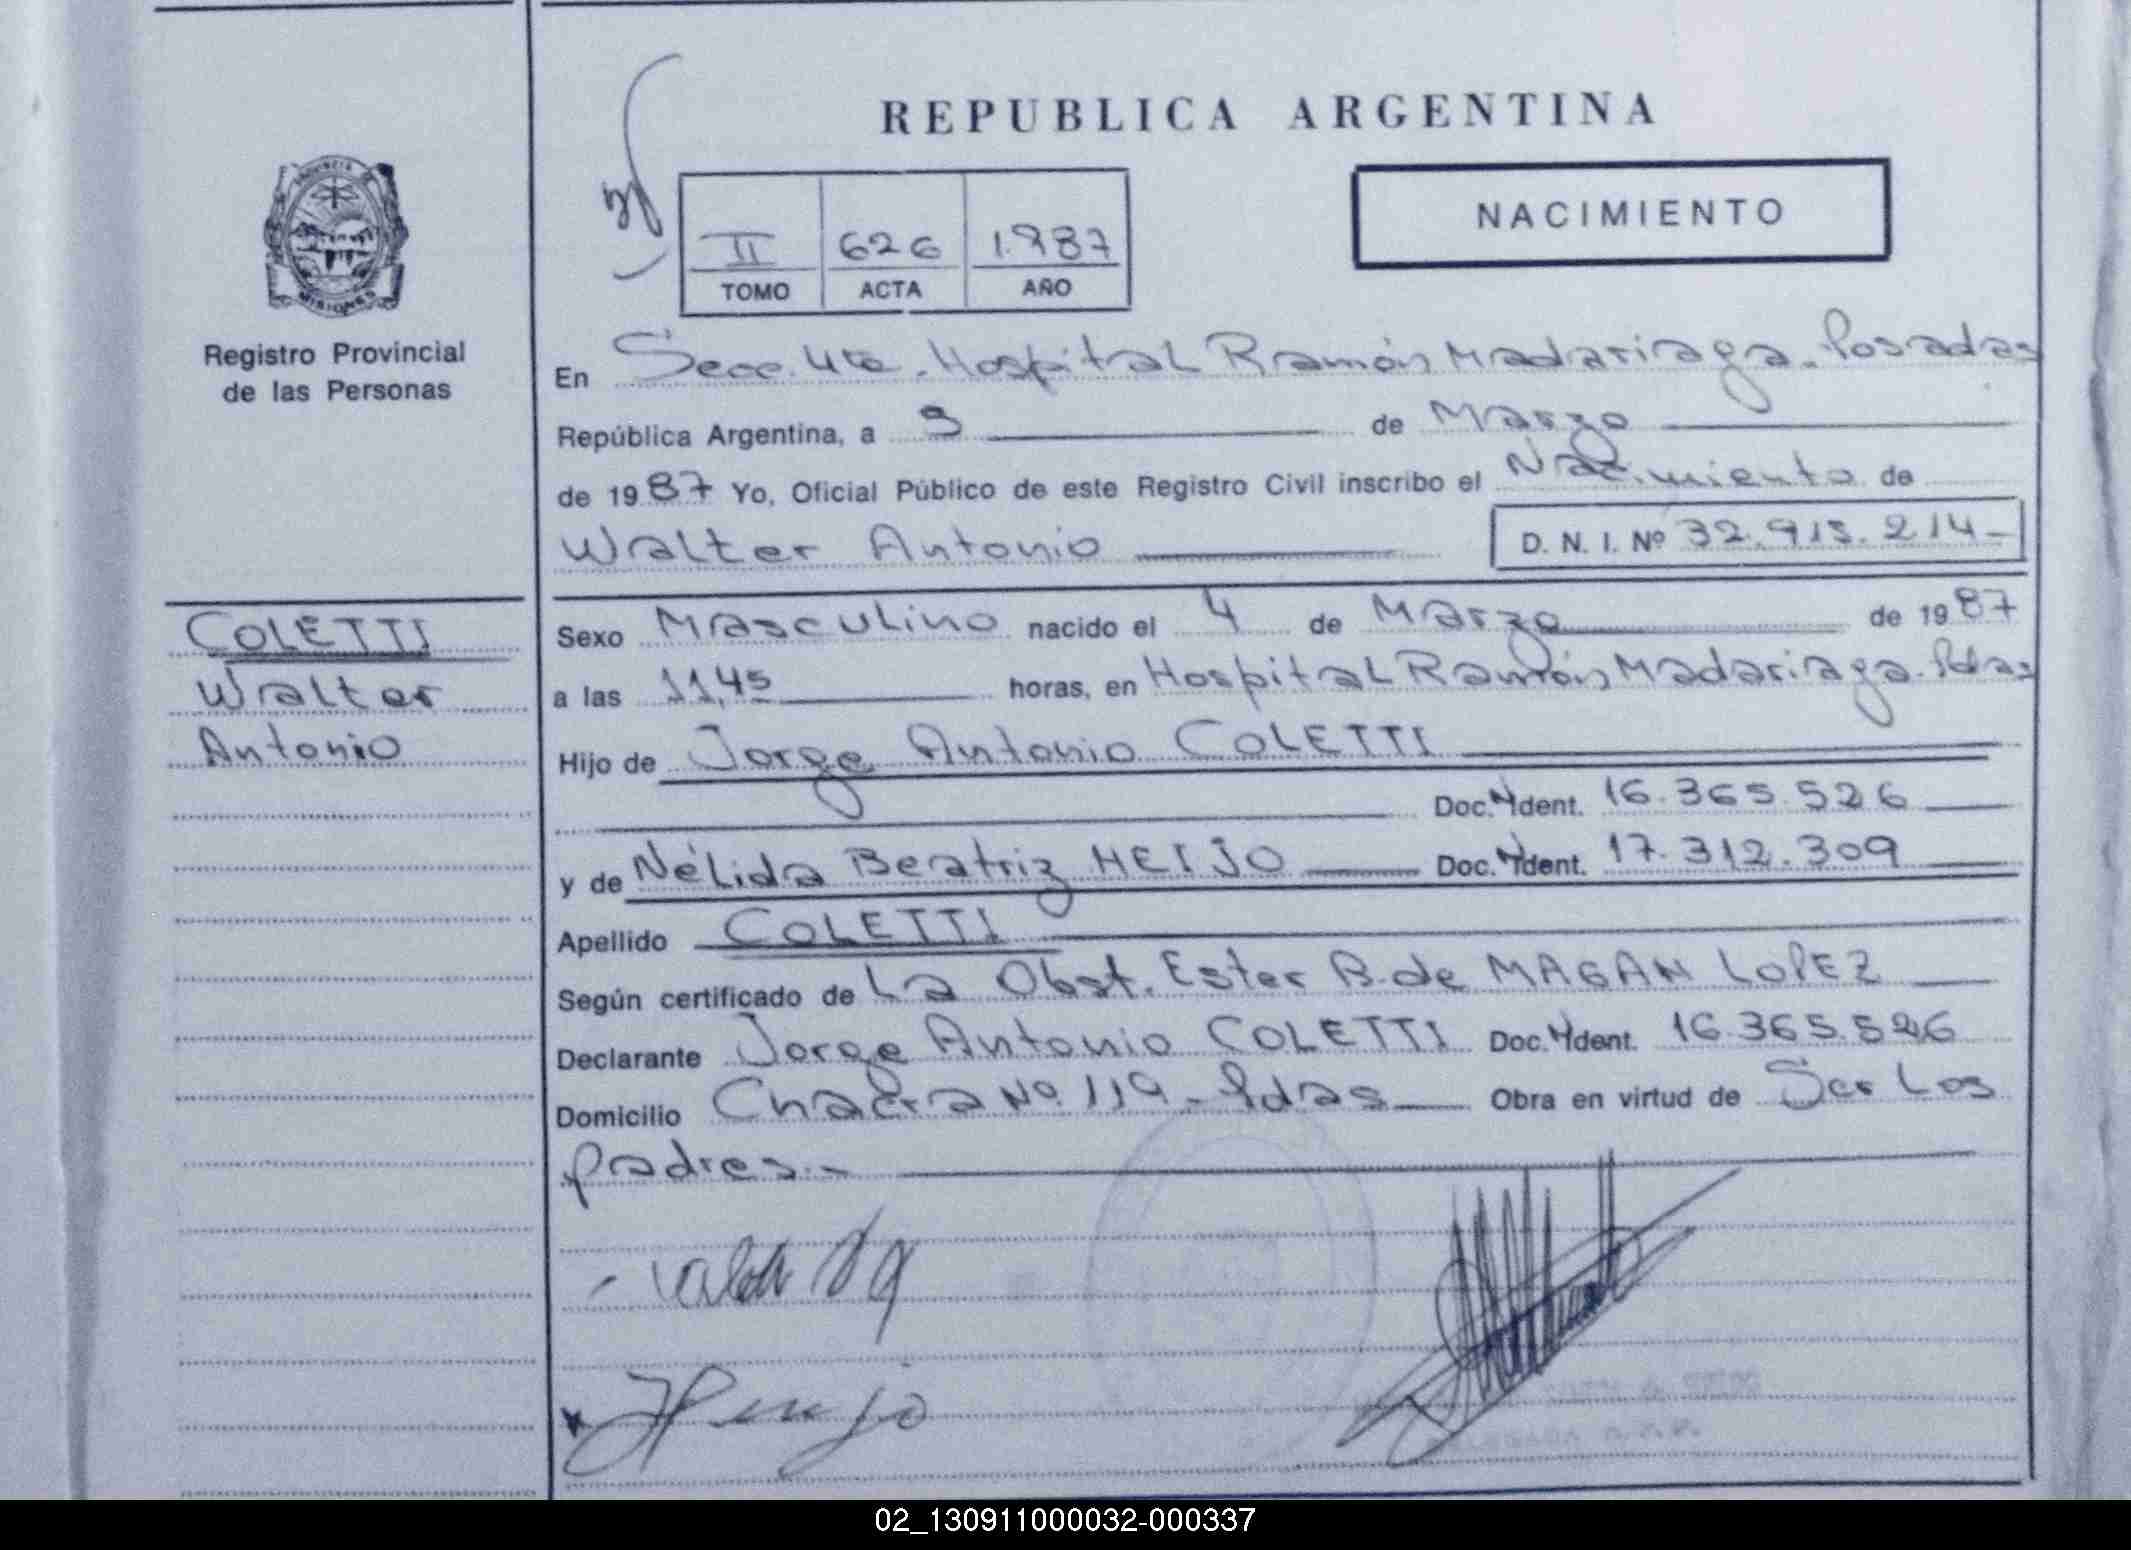 REPUBLICA ARGENTINA
NACIMIENTO
II 626 1.987
TOMO ACTA AÑO
PROVINCIA DE
MISIONES
Registro Provincial
de las Personas
En Secc. 4ta. Hospital Ramón Madariaga. Posadas
República Argentina, a 9 de Marzo
de 1987 Yo, Oficial Público de este Registro Civil inscribo el Nacimiento de
Walter Antonio D. N. I. Nº 32.913.214-
COLETTI
Walter
Antonio
Sexo Masculino nacido el 4 de Marzo de 1987
a las 11,45 horas, en Hospital Ramón Madariaga. Pdas
Hijo de Jorge Antonio COLETTI
Doc. Ident. 16.365.526
y de Nélida Beatriz HEIJO Doc. Ident. 17.312.309
Apellido COLETTI
Según certificado de La Obst. Ester B. de MAGAN LOPEZ
Declarante Jorge Antonio COLETTI Doc. Ident. 16.365.526
Domicilio Chacra Nº 119 - Pdas Obra en virtud de Ser Los
padres.-
02_130911000032-000337